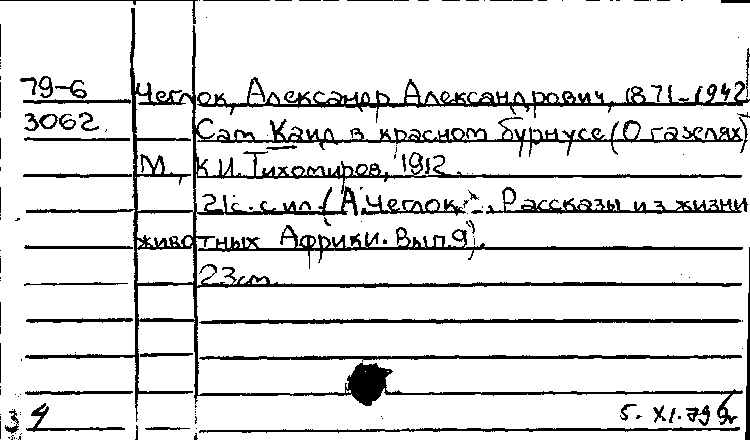 79-6 Чеглок, Александр Александрович, 1871-1942
3062 Сам Каид в красном бурнусе (О газелях)
М., К.И. Тихомиров, 1912.
21 с. с ил. (А. Чеглок. Рассказы из жизни
животных Африки. Вып. 9).
23 см.
4 5. XI. 79